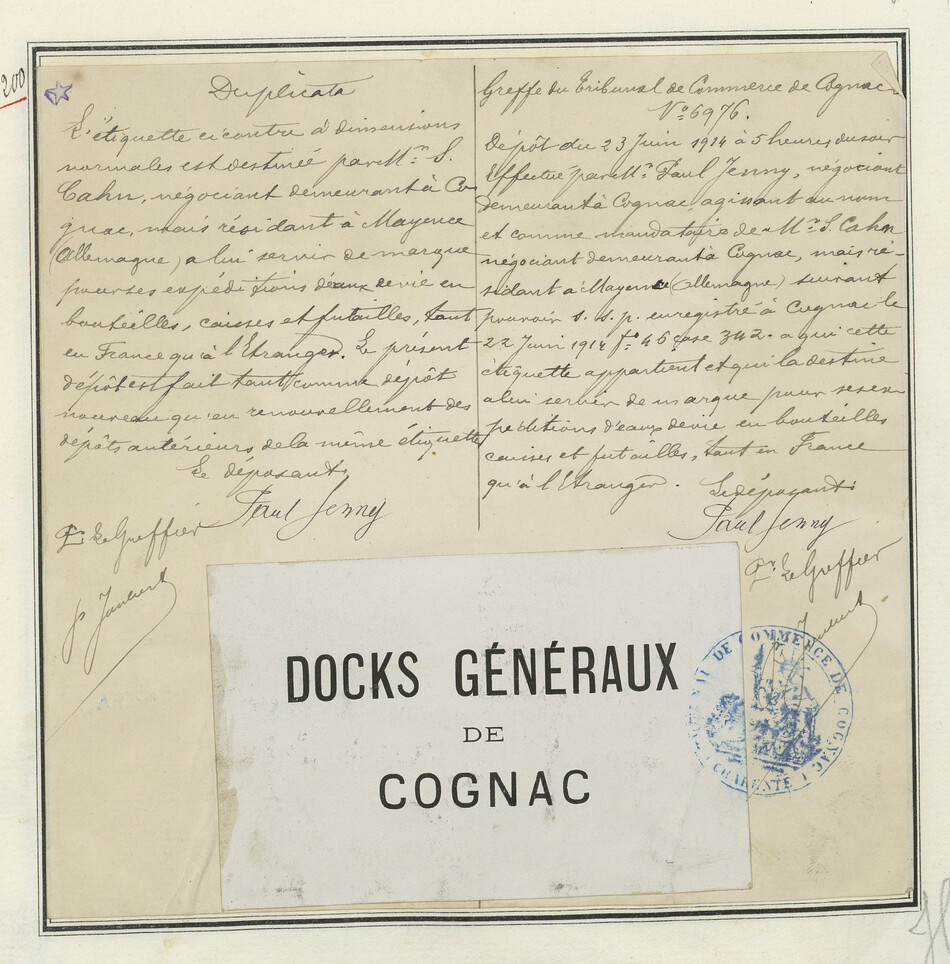 200
Duplicata
L'étiquette ci contre à dimensions
normales est destinée par Mr. S.
Cahn, négociant demeurant à Co
gnac, mais résidant à Mayence
(Allemagne) a lui servir de marque
pour ses expéditions d'eaux de vie en
bouteilles, caisses et futailles, tant
en France qu'à l'Etranger. Le présent
dépôt est fait tant comme dépôt
nouveau qu'en renouvellement des
dépôts antérieurs de la même étiquette
Le déposant
Paul Jenny
Pr. Le Greffier
Greffe du Tribunal de Commerce de Cognac
No 6976.
Dépôt du 23 Juin 1914 à 5 heures du soir
Effectué par Mr. Paul Jenny, négociant
demeurant à Cognac, agissant au nom
et comme mandataire de Mr. S. Cahn
négociant demeurant à Cognac, mais ré-
sidant à Mayence (Allemagne) suivant
pouvoir s. s. p. enregistré à Cognac le
22 Juin 1914 fo. 46 case 342. a qui cette
étiquette appartient et qui la destine
a lui servir de marque pour ses ex-
péditions d'eaux de vie en bouteilles
caisses et futailles, tant en France
qu'à l'Etranger. Le déposant
Paul Jenny
Pr. Le Greffier
DOCKS GÉNÉRAUX
DE
COGNAC
TRIBUNAL DE COMMERCE DE COGNAC
CHARENTE